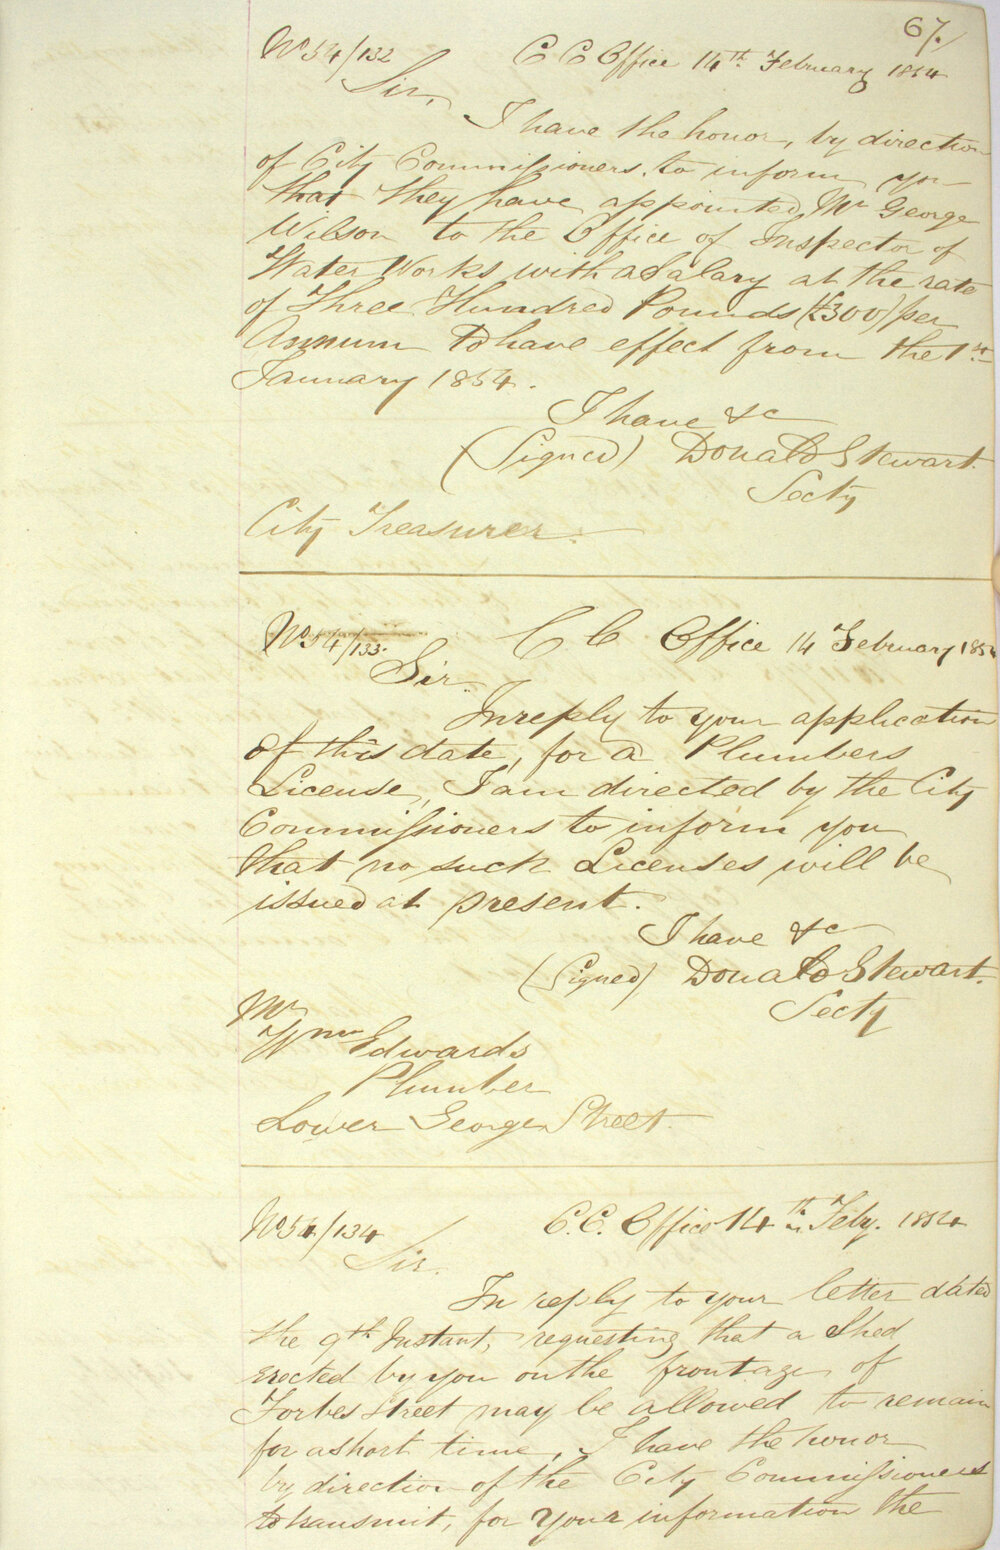 67.
No 54/132 C C Office 14th February 1854
Sir,
I have the honor, by direction
of City Commissioners, to inform you
that they have appointed Mr George
Wilson to the Office of Inspector of
Water Works with a Salary at the rate
of Three Hundred Pounds (£300) per
Annum to have effect from the 1st
January 1854.
I have &c
(Signed) Donald Stewart
Secty
City Treasurer.
No 54/133. C C Office 14 February 1854
Sir.
In reply to your application
of this date, for a Plumbers
License, I am directed by the City
Commissioners to inform you
that no such Licenses will be
issued at present.
I have &c
(Signed) Donald Stewart.
Secty
Mr
Wm Edwards
Plumber
Lower George Street.
No 54/134 C.C. Office 14th Feby. 1854
Sir.
In reply to your letter dated
the 9th Instant, requesting that a Shed
erected by you on the frontage of
Forbes Street may be allowed to remain
for a short time, I have the honor
by direction of the City Commissioners
to transmit, for your information the